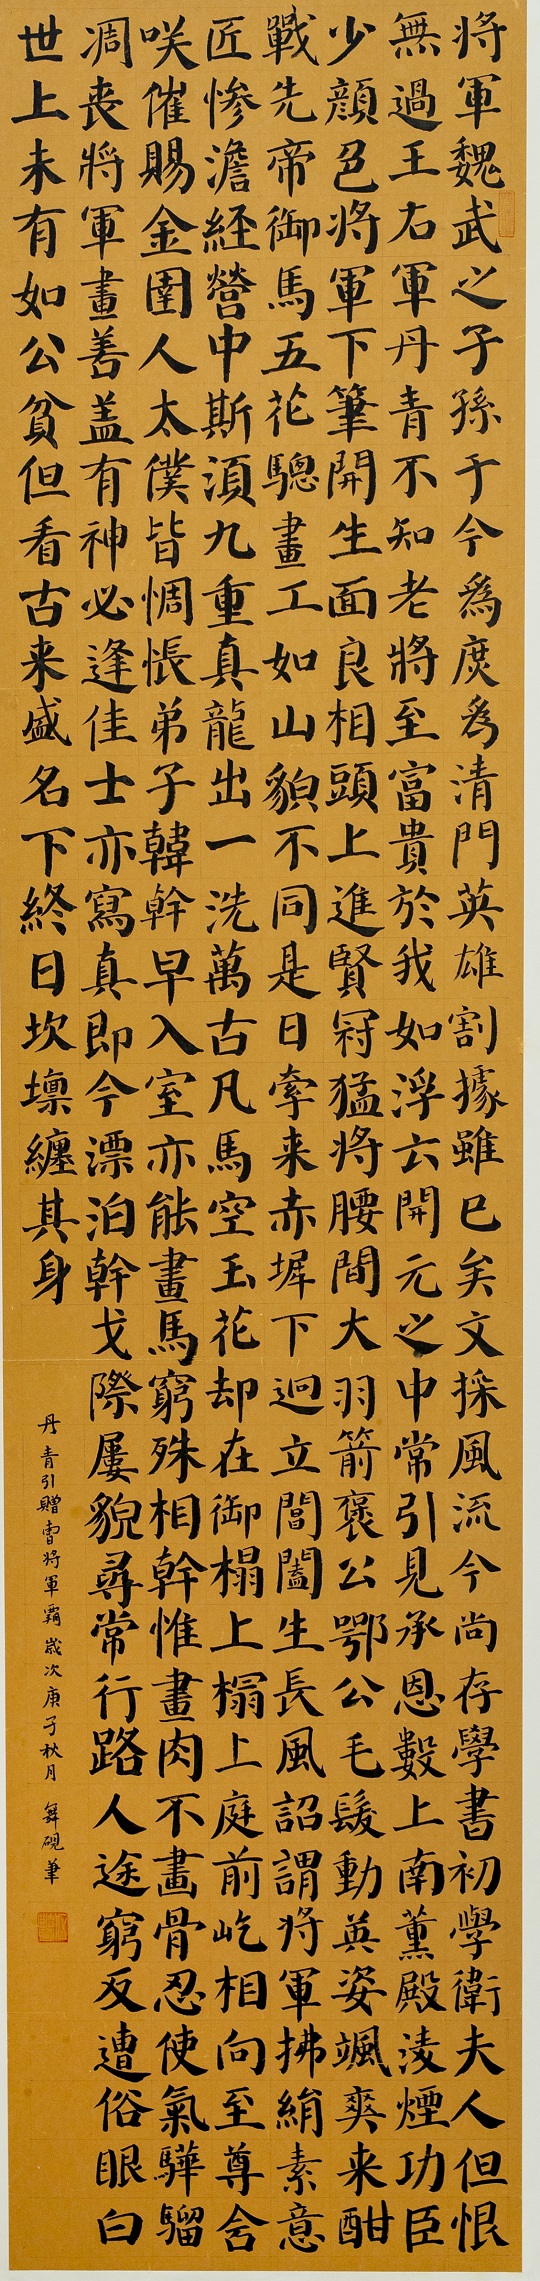 将軍魏武之子孫于今爲庶為清門英雄割據雖已矣文採風流今尚存學書初學衛夫人但恨
無過王右軍丹青不知老將至富貴於我如浮云開元之中常引見承恩數上南薰殿淩煙功臣
少顔色将軍下筆開生面良相頭上進賢冠猛将腰間大羽箭褒公鄂公毛髮動英姿颯爽来酣
戰先帝御馬五花驄畫工如山貌不同是日牽来赤墀下迥立閶闔生長風詔謂将軍拂絹素意
匠惨澹経營中斯湏九重真龍出一洗萬古凡馬空玉花却在御榻上榻上庭前屹相向至尊含
咲催賜金圉人太僕皆惆悵弟子韓幹早入室亦能畫馬窮殊相幹惟畫肉不畫骨忍使氣驊騮
凋喪將軍畫善盖有神必逢佳士亦寫真即今漂泊幹戈際屢貌尋常行路人途窮反遭俗眼白
世上未有如公貧但看古来盛名下終日坎壈纏其身
丹青引贈曹将軍霸 歲次庚子秋月 舞硯筆